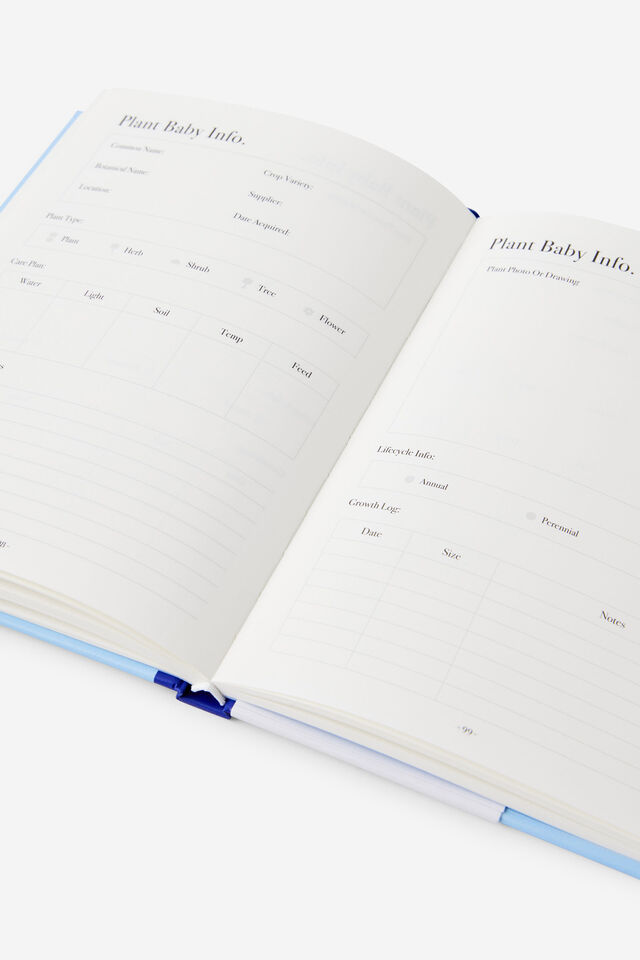 Plant Baby Info.
Common Name:
Crop Variety:
Botanical Name:
Supplier:
Location:
Date Acquired:
Plant Type:
Plant Herb Shrub Tree Flower
Care Plan:
Water Light Soil Temp Feed
Plant Baby Info.
Plant Photo Or Drawing
Lifecycle Info:
Annual Perennial
Growth Log:
Date Size Notes
-99-